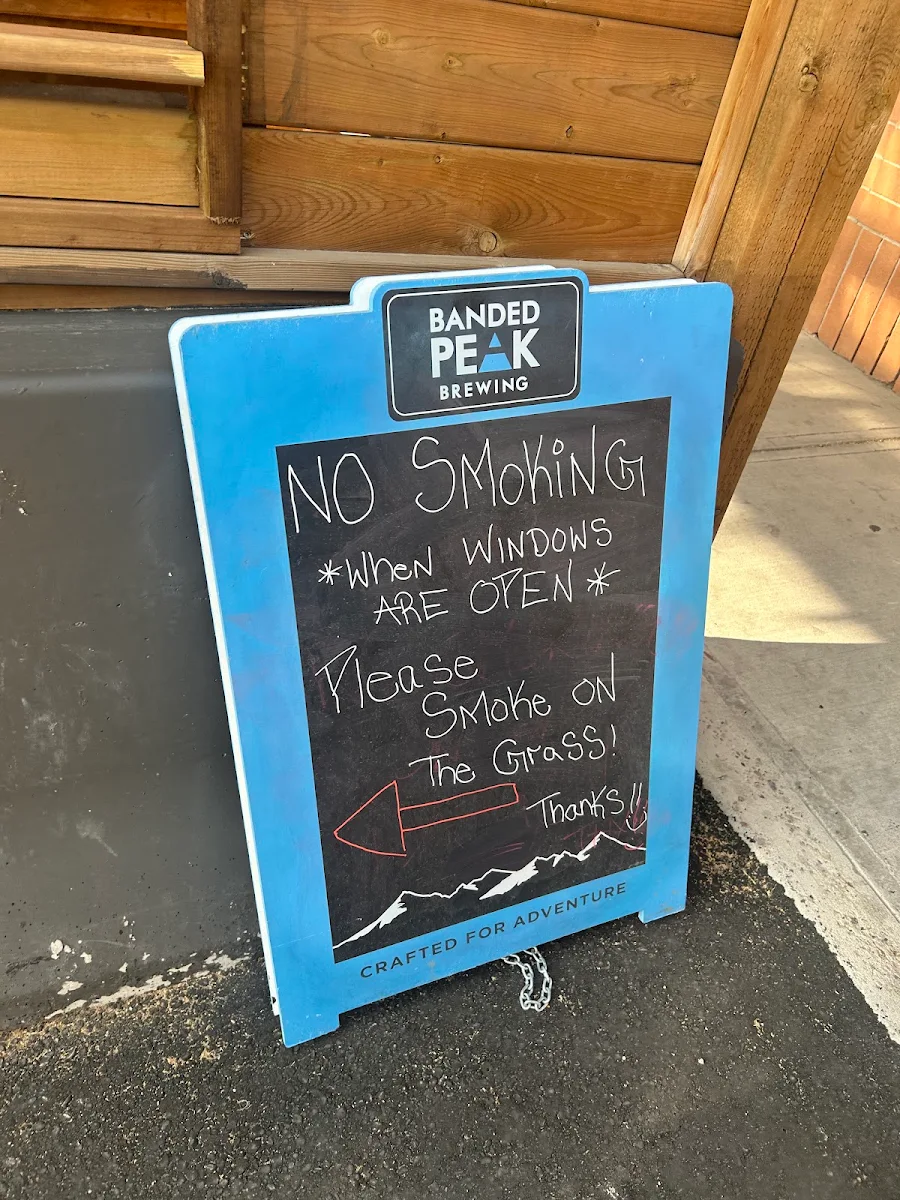 BANDED
PEAK
BREWING
NO SMOKING
*WHEN WINDOWS
ARE OPEN*
Please
Smoke on
The Grass!
Thanks!!
CRAFTED FOR ADVENTURE